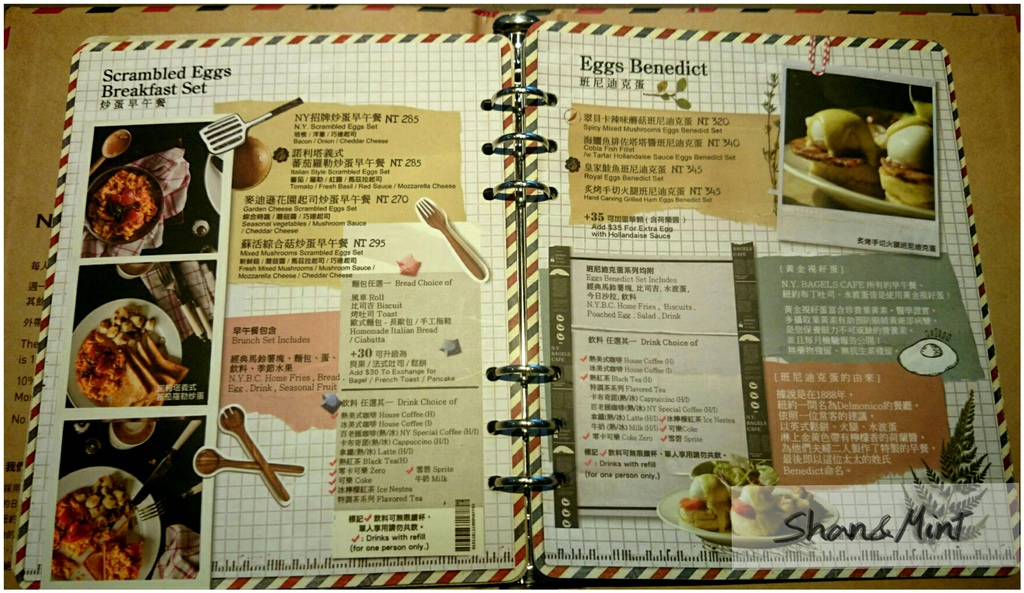 Scrambled Eggs
Breakfast Set
炒蛋早午餐
NY招牌炒蛋早午餐 NT 285
N.Y. Scrambled Eggs Set
培根 / 洋蔥 / 巧達起司
Bacon / Onion / Cheddar Cheese
諾利塔義式
蕃茄羅勒炒蛋早午餐 NT 285
Italian Style Scrambled Eggs Set
蕃茄 / 羅勒 / 紅醬 / 馬茲拉起司
Tomato / Fresh Basil / Red Sauce / Mozzarella Cheese
麥迪遜花園起司炒蛋早午餐 NT 270
Garden Cheese Scrambled Eggs Set
綜合時蔬 / 蘑菇醬 / 巧達起司
Seasonal vegetables / Mushroom Sauce
/ Cheddar Cheese
蘇活綜合菇炒蛋早午餐 NT 295
Mixed Mushrooms Scrambled Eggs Set
新鮮菇 / 蘑菇醬 / 馬茲拉起司 / 巧達起司
Fresh Mixed Mushrooms / Mushroom Sauce /
Mozzarella Cheese / Cheddar Cheese
麵包任選一 Bread Choice of
風車 Roll
比司吉 Biscuit
烤吐司 Toast
歐式麵包 - 長歐包 / 手工拖鞋
Homemade Italian Bread
/ Ciabatta
+30 可升級為
貝果 / 法式吐司 / 鬆餅
Add $30 To Exchange for
Bagel / French Toast / Pancake
早午餐包含
Brunch Set Includes
經典馬鈴薯塊、麵包、蛋、
飲料、季節水果
N.Y.B.C. Home Fries , Bread ,
Egg , Drink , Seasonal Fruit
飲料 任選其一 Drink Choice of
熱美式咖啡 House Coffee (H)
冰美式咖啡 House Coffee (I)
百老匯咖啡(熱/冰) NY Special Coffee (H/I)
卡布奇諾(熱/冰) Cappuccino (H/I)
拿鐵(熱/冰) Latte (H/I)
熱紅茶 Black Tea(H)
零卡可樂 Zero 雪碧 Sprite
可樂 Coke 牛奶 Milk
冰檸檬紅茶 Ice Nestea
特調茶系列 Flavored Tea
標記 飲料可無限續杯，
單人享用請勿共飲。
: Drinks with refill
(for one person only.)
諾利塔義式
蕃茄羅勒炒蛋
Eggs Benedict
班尼迪克蛋
翠貝卡辣味蘑菇班尼迪克蛋 NT 320
Spicy Mixed Mushrooms Eggs Benedict Set
海鱺魚排佐塔塔醬班尼迪克蛋 NT 340
Cobia Fish Fillet
/w Tartar Hollandaise Sauce Eggs Benedict Set
皇家鮭魚班尼迪克蛋 NT 345
Royal Eggs Benedict Set
炙烤手切火腿班尼迪克蛋 NT 345
Hand Carving Grilled Ham Eggs Benedict Set
+35 可加蛋單顆 ( 含荷蘭醬 )
Add $35 For Extra Egg
with Hollandaise Sauce
炙烤手切火腿班尼迪克蛋
班尼迪克蛋系列均附
Eggs Benedict Set Includes
經典馬鈴薯塊, 比司吉, 水波蛋,
今日沙拉, 飲料
N.Y.B.C. Home Fries , Biscuits ,
Poached Egg , Salad , Drink
飲料 任選其一 Drink Choice of
熱美式咖啡 House Coffee (H)
冰美式咖啡 House Coffee (I)
熱紅茶 Black Tea (H)
特調茶系列 Flavored Tea
卡布奇諾(熱/冰) Cappuccino (H/I)
百老匯咖啡(熱/冰) NY Special Coffee (H/I)
拿鐵(熱/冰) Latte (H/I) 冰檸檬紅茶 Ice Nestea
牛奶(熱/冰) Milk (H/I) 可樂Coke
零卡可樂 Coke Zero 雪碧 Sprite
標記 飲料可無限續杯，單人享用請勿共飲。
: Drinks with refill
(for one person only.)
[ 黃金視好蛋 ]
N.Y. BAGELS CAFE 所有的早午餐、
紐約布丁吐司、水波蛋皆是使用黃金視好蛋！
黃金視好蛋富含珍貴葉黃素，醫學證實，
是您保養眼力不可或缺的營養素。
並且每月檢驗報告公開：
無藥物殘留、無抗生素殘留。
[ 班尼迪克蛋的由來 ]
據說是在1888年，
紐約一間名為Delmonico的餐廳，
依照一位常客的建議，
以英式鬆餅、火腿、水波蛋
淋上金黃色帶有檸檬香的荷蘭醬，
為他們夫婦二人製作了特製的早餐，
最後即以這位太太的姓氏
Benedict命名。
Shan&Mint